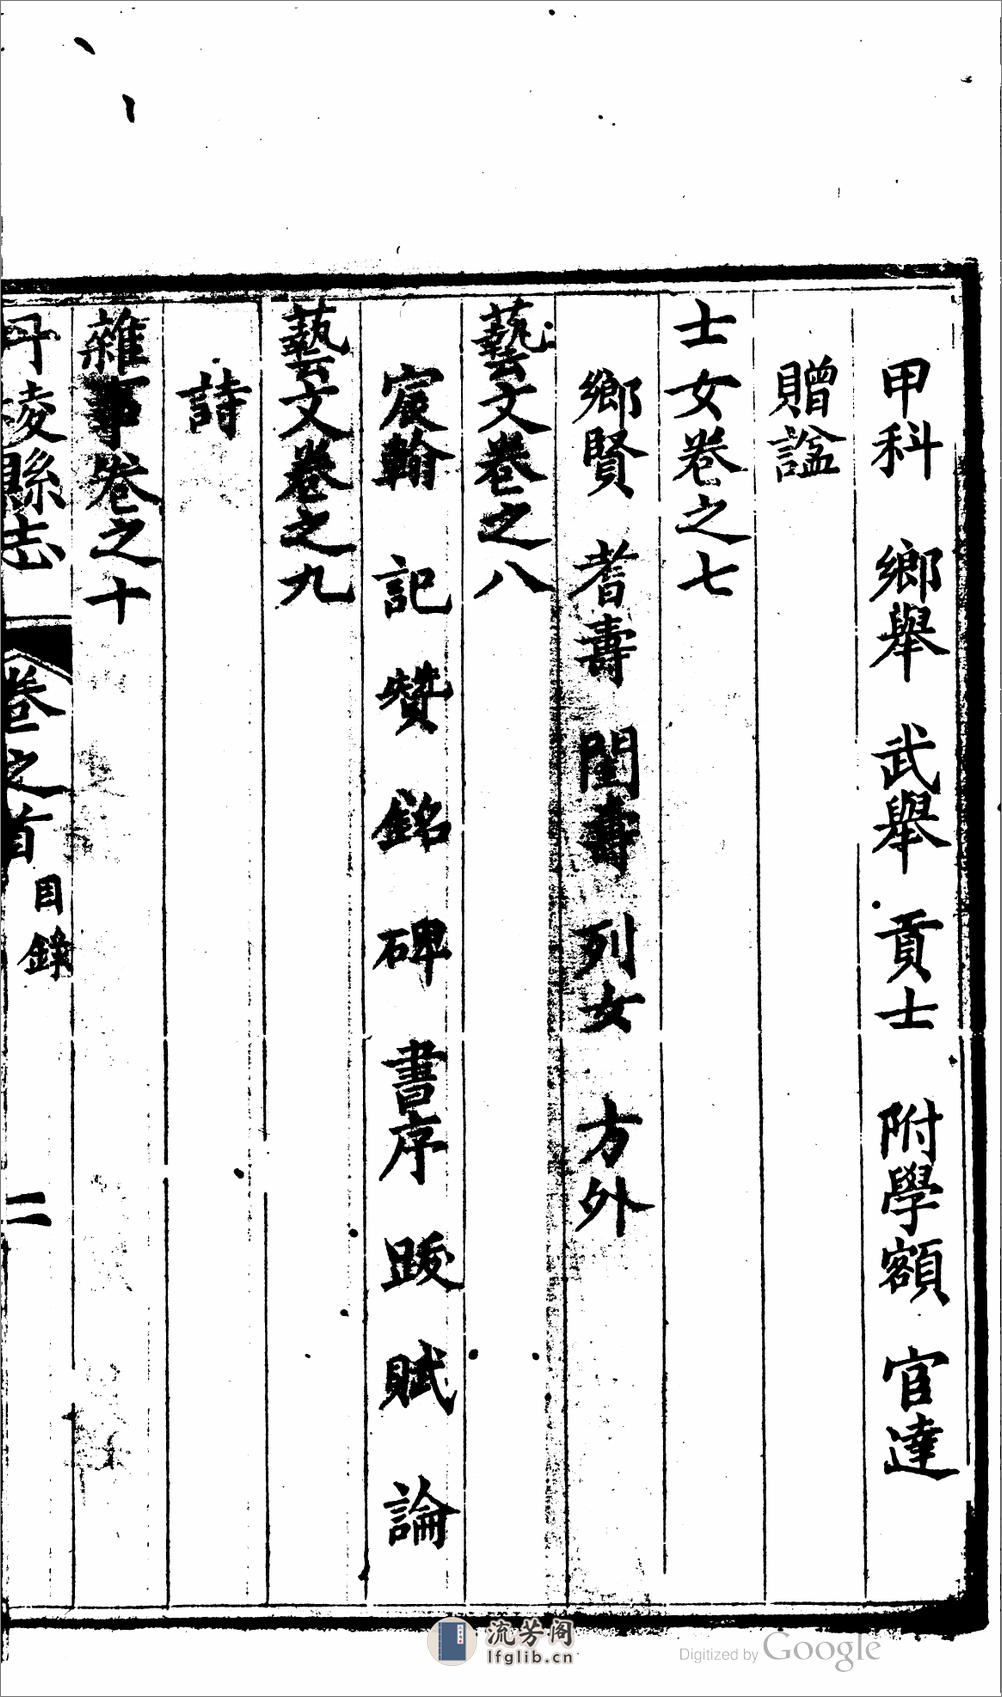 甲科　鄉舉　武舉　貢士　附學額　官達
贈諡
士女卷之七
鄉賢　耆壽　閨壽　列女　方外
藝文卷之八
宸翰　記　贊　銘　碑　書序　跋　賦　論
藝文卷之九
詩
雜事卷之十
丹稜縣志　卷之首　目錄　二
流芳阁
lfglib.cn
Digitized by Google